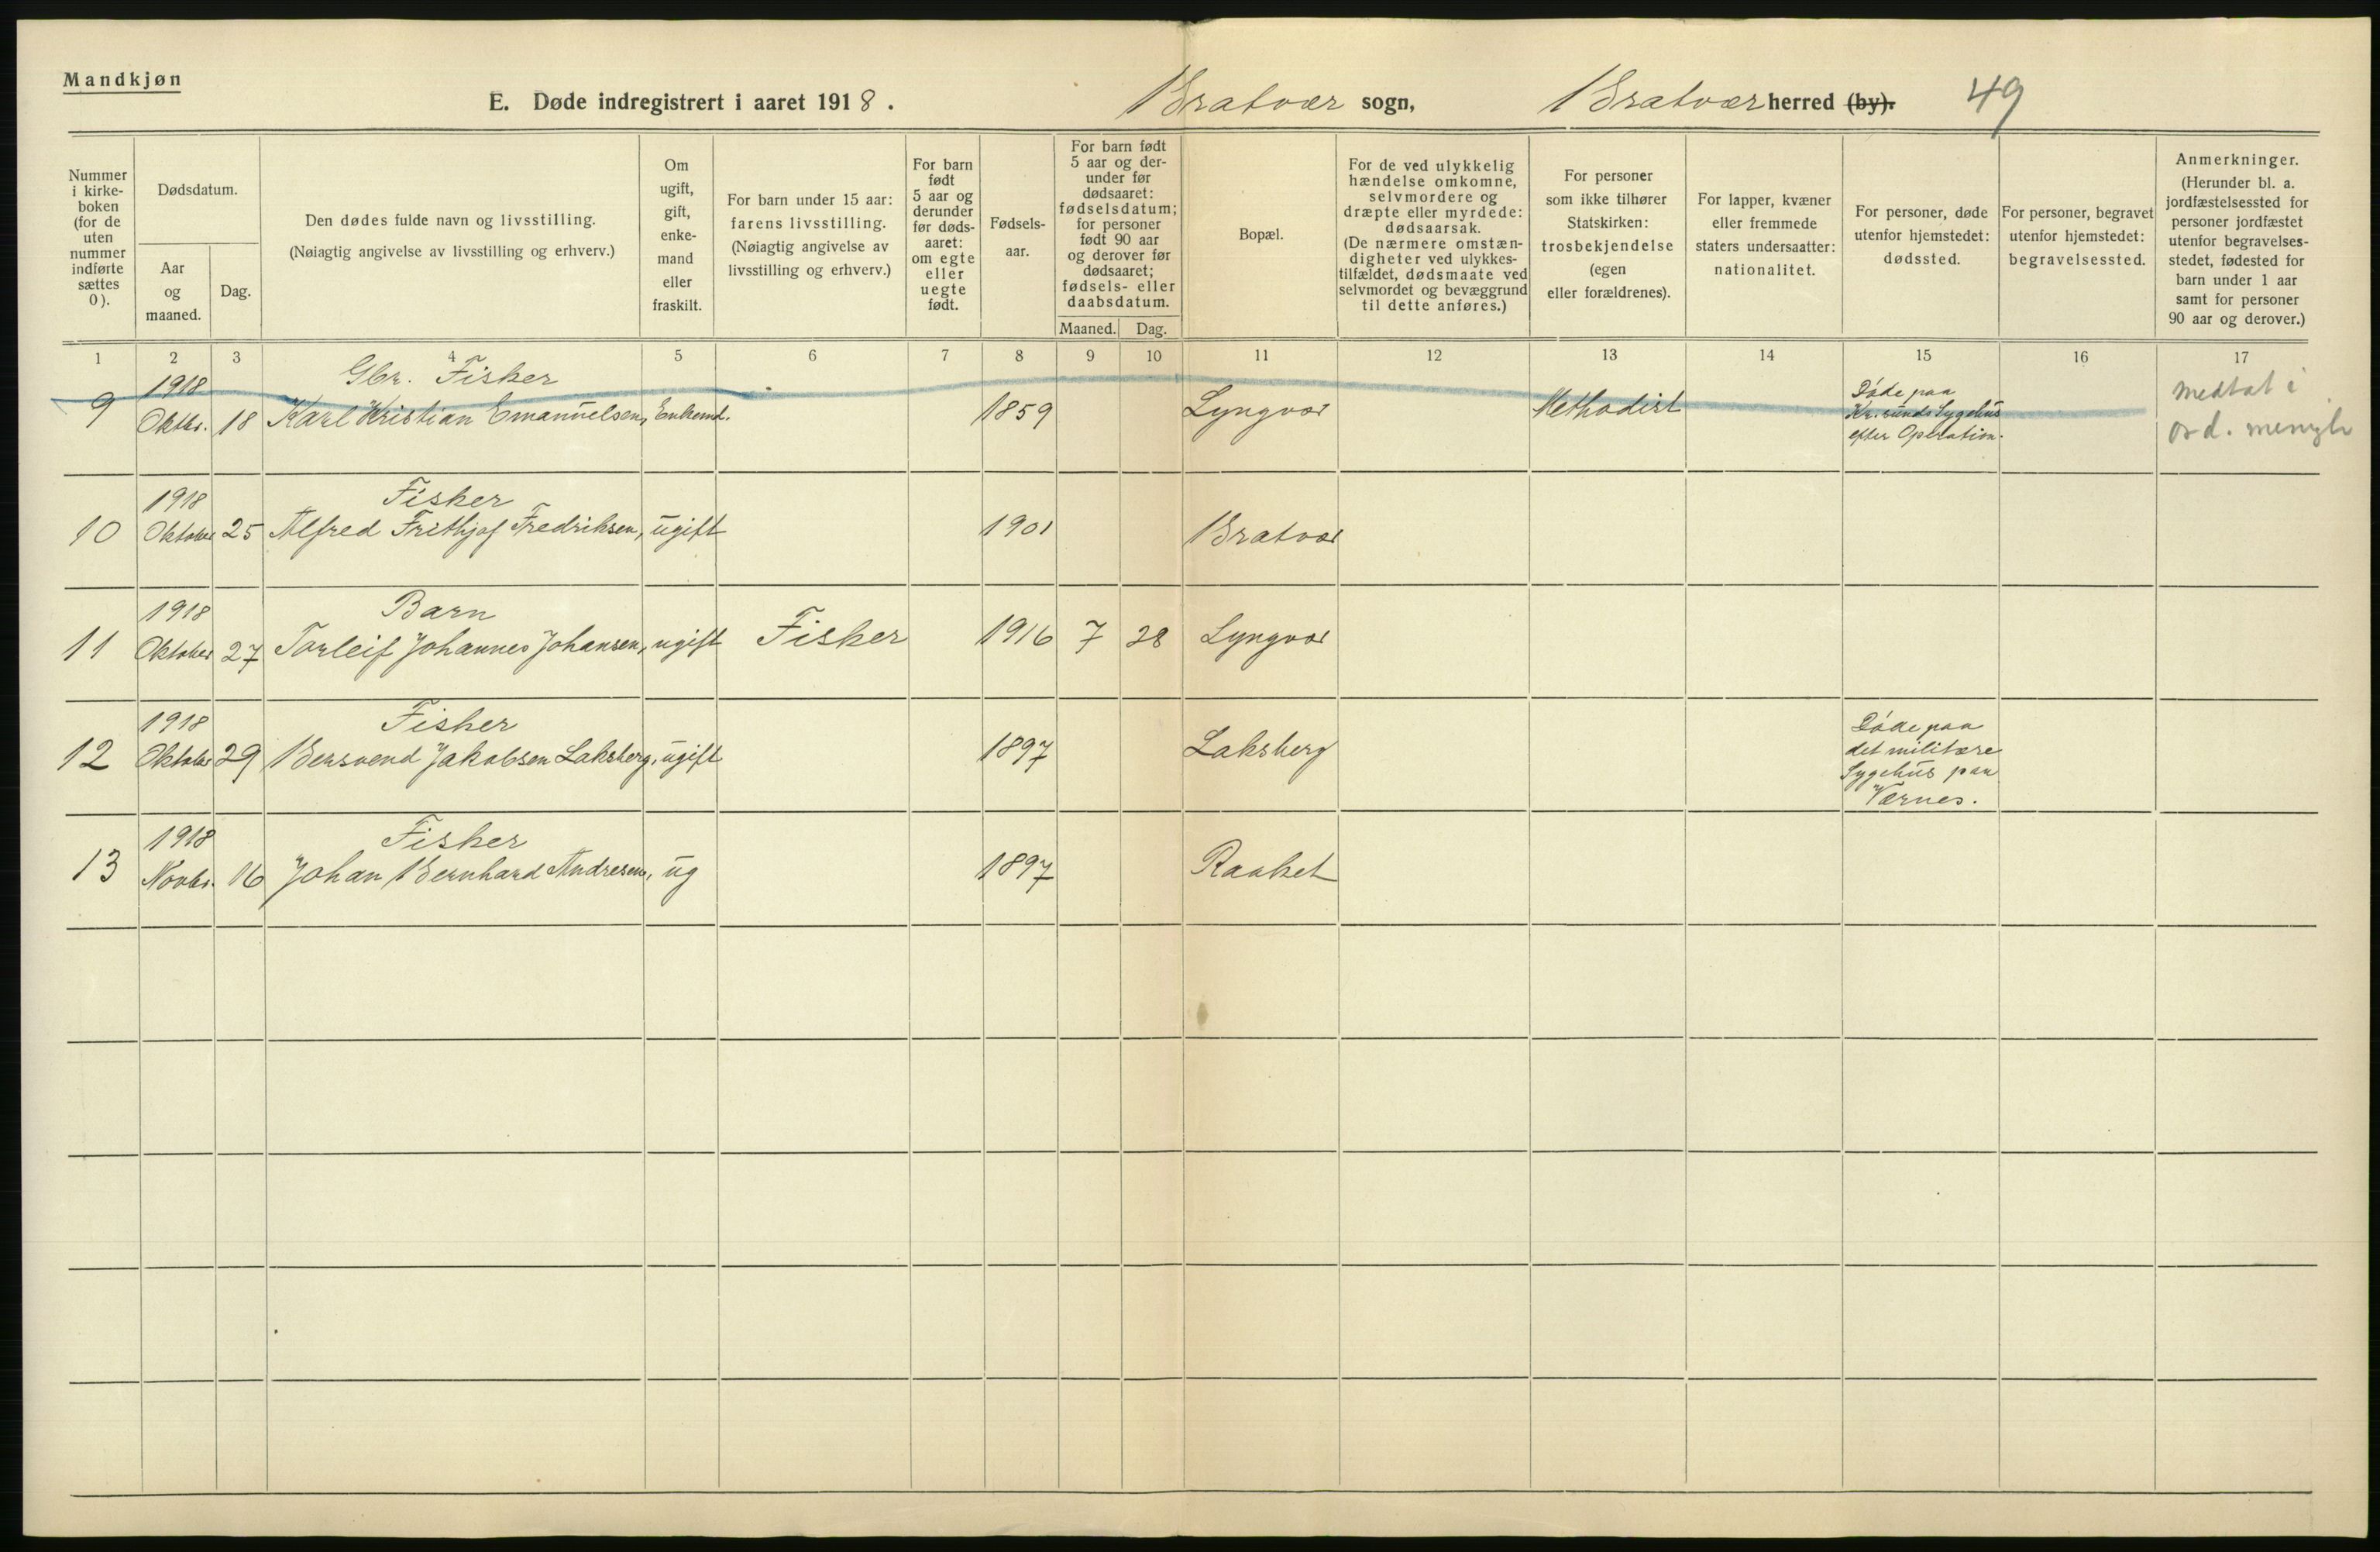 Mandkjøn
E. Døde indregistrert i aaret 1918. Bratvær sogn, Bratvær herred (by). 49
Nummer
i kirke-
boken
(for de
uten
nummer
indførte
sættes
0).
Dødsdatum.
Aar
og
maaned.
Dag.
Den dødes fulde navn og livsstilling.
(Nøiagtig angivelse av livsstilling og erhverv.)
Om
ugift,
gift,
enke-
mand
eller
fraskilt.
For barn under 15 aar:
farens livsstilling.
(Nøiagtig angivelse av
livsstilling og erhverv.)
For barn
født
5 aar og
derunder
før døds-
aaret:
om egte
eller
uegte
født.
Fødsels-
aar.
For barn født
5 aar og der-
under før
dødsaaret:
fødselsdatum;
for personer
født 90 aar
og derover før
dødsaaret;
fødsels- eller
daabsdatum.
Maaned. Dag.
Bopæl.
For de ved ulykkelig
hændelse omkomne,
selvmordere og
dræpte eller myrdede:
dødsaarsak.
(De nærmere omstæn-
digheter ved ulykkes-
tilfældet, dødsmaate ved
selvmordet og bevæggrund
til dette anføres.)
For personer
som ikke tilhører
Statskirken:
trosbekjendelse
(egen
eller forældrenes).
For lapper, kvæner
eller fremmede
staters undersaatter:
nationalitet.
For personer, døde
utenfor hjemstedet:
dødssted.
For personer, begravet
utenfor hjemstedet:
begravelsessted.
Anmerkninger.
(Herunder bl. a.
jordfæstelsessted for
personer jordfæstet
utenfor begravelses-
stedet, fødested for
barn under 1 aar
samt for personer
90 aar og derover.)
1 2 3 4 5 6 7 8 9 10 11 12 13 14 15 16 17
1918 Gbr. Fisker
9 Oktbr. 18 Karl Kristian Emanuelsen, Enkemd. 1859 Lyngvær Methodist
Døde paa
Kr.sunds Sygehus
efter Operation.
medtat i
ord. menigh
1918 Fisker
10 Oktober 25 Alfred Frithjof Fredriksen, ugift 1901 Bratvær
1918 Barn
11 Oktober 27 Torleif Johannes Johansen, ugift Fisker 1916 7 28 Lyngvær
1918 Fisker
12 Oktober 29 Bersvend Jakobsen Laksberg, ugift 1897 Laksberg
Døde paa
det militære
Sygehus paa
Værnes.
1918 Fisker
13 Novbr. 16 Johan Bernhard Andresen, ug 1897 Raaket